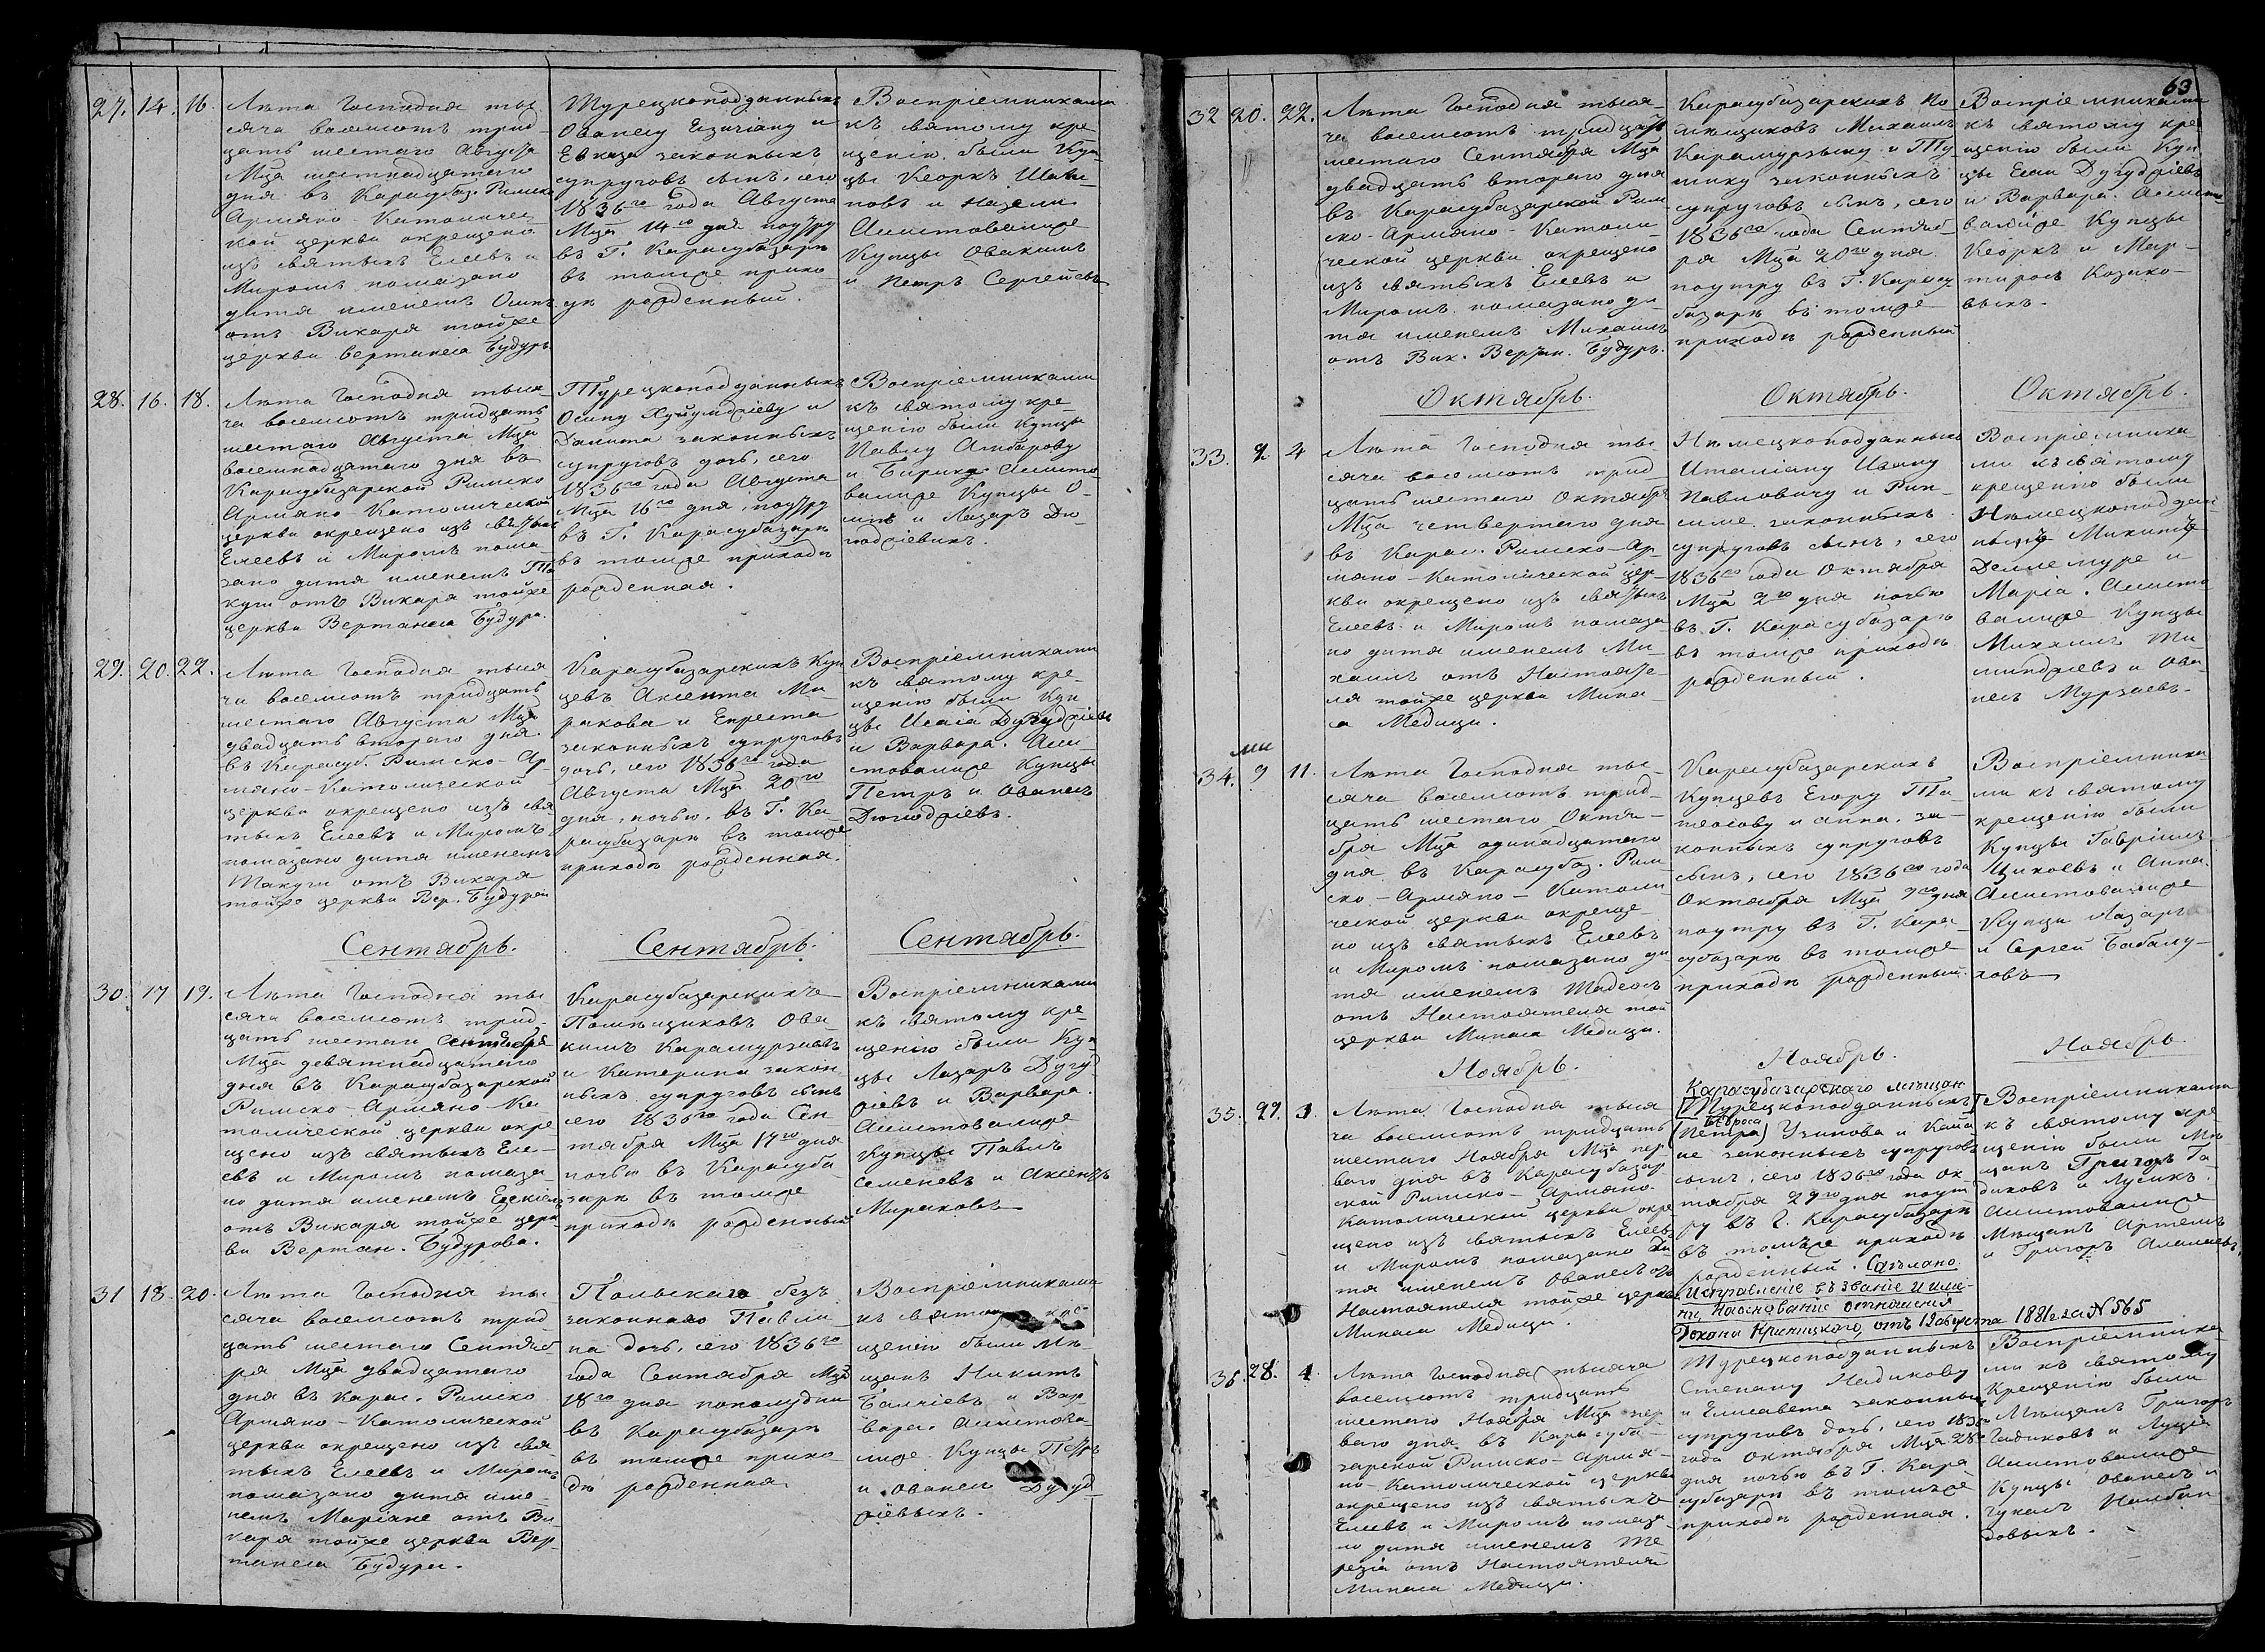 27. 14. 16.
Лѣта Господня тыс
сяча восемсотъ трид
цать шестаго Августа
Мца шестнадцатаго
дня въ Карасубаз. Римско
Армяно-Католичес
кой церкви окрещено
изъ святыхъ Елеевъ и
Миромъ помазано
дитя именемъ
отъ Викаря тойже
церкви Вертанеса Будур.
Турецкоподданныхъ
Ованесу и
законныхъ
супруговъ сынъ, сего
1836го года Августа
Мца 14го дня поутру
въ Г. Карасубазарѣ
въ томже прихо
дѣ рожденный.
Воспріемниками
къ святому кре
щенію были Куп
цы Кеоркъ
новъ и Назели
Ассистовалиже
Купцы Овакимъ
и Петръ Сергеевъ
28. 16. 18.
Лѣта Господня тыся
ча восемсотъ тридцать
шестаго Августа Мца
восемнадцатаго дня въ
Карасубазарской Римско
Армяно Католической
церкви окрещено изъ святыхъ
Елеевъ и Миромъ пома
зано дитя именемъ Та
куги отъ Викаря тойже
церкви Вертанеса Будура.
Турецкоподданныхъ
Осипу и
законныхъ
супруговъ дочь, сего
1836го года Августа
Мца 16го дня, поутру
въ Г. Карасубазарѣ
въ томже приходѣ
рожденная.
Воспріемниками
къ святому кре
щенію были Купцы
Павлу
и Ассисто
валиже Купцы О
и Лазаръ Дю
29. 20. 22.
Лѣта Господня тыся
ча восемсотъ тридцать
шестаго Августа Мца
двадцать втораго дня.
въ Карасуб. Римско-Ар
мяно-Католической
церкви окрещено изъ свя
тыхъ Елеевъ и Миромъ
помазано дитя именемъ
Такуги отъ Викаря
тойже церкви Вер. Будурея
Карасубазарскихъ Куп
цевъ Аксента Ми
ракова и Епреста
законныхъ супруговъ
дочь, сего 1836го года
Августа Мца 20го
дня, ночью, въ Г. Ка
расубазарѣ въ томже
приходѣ рожденная.
Воспріемниками
къ святому кре
щенію были Куп
цы Исаія Дугуджіевъ
и Варвара. Асси
стовалиже Купцы
Петръ и Ованесъ
Дюгюджіевъ.
Сентябрь.
Сентябрь.
Сентябрь.
30. 17 19.
Лѣта Господня ты
сяча восемсотъ трид
цать шестаго Сентября
Мца девятнадцатаго
дня въ Карасубазарской
Римско-Армяно Ка
толической церкви окре
щено изъ святыхъ Еле
евъ и Миромъ помаза
но дитя именемъ
отъ Викаря тойже церк
ви Вертан. Будурова.
Карасубазарскихъ
Помѣщиковъ Ова
кимъ Карамурзаевъ
и Катерина закон
ныхъ супруговъ сынъ
сего 1836го года Сен
тября Мца 17го дня
ночью въ Карасуба
зарѣ въ томже
приходѣ рожденный
Воспріемниками
къ святому кре
щенію были Куп
цы Лазаръ Дугуд
жіевъ и Варвара.
Ассистовалиже
Купцы Павелъ
Семеневъ и Аксентъ
Мираковъ
31 18. 20.
Лѣта Господня ты
сяча восемсотъ трид
цать шестаго Сентяб
ря Мца двадцатаго
дня въ Карас. Римско
Армяно-Католической
церкви окрещено изъ свя
тыхъ Елеевъ и Миромъ
помазано дитя име
немъ Маріане отъ Ви
каря тойже церкви Вер
танеса Будуры.
Польскаго безъ
законнаго Павли
на дочь, сего 1836го
года Сентября Мца
18го дня пополудни
въ Карасубазарѣ
въ томже прихо
дѣ рожденная.
Воспріемниками
къ святому кре
щенію были Мѣ
щанъ Никитъ
Балчіевъ и Вар
вара. Ассистова
лиже Купцы Петръ
и Ованесъ Дугуд
жіевыхъ.
63
32 20. 22.
Лѣта Господня тыся
ча восемсотъ тридцать
шестаго Сентября Мца
двадцать втораго дня
въ Карасубазарской Рим
ско-Армяно-Католи
ческой церкви окрещено
изъ святыхъ Елеевъ и
Миромъ помазано ди
тя именемъ Михаилъ
отъ Вик. Вертан. Будуръ.
Карасубазарскихъ По
мѣщиковъ Михаилъ
Карамурзыку и Ту
мику законныхъ
супруговъ сынъ, сего
1836го года Сентяб
ря Мца 20го дня
поутру въ Г. Карасу
базарѣ въ томже
приходѣ рожденный
Воспріемниками
къ святому кре
щенію были Куп
цы Есаи Дугуджіевъ
и Варвара. Ассисто
валиже Купцы
Кеоркъ и Мар
тиросъ Казако
выхъ.
Октябрь.
Октябрь.
Октябрь.
33. 2 4
Лѣта Господня ты
сяча восемсотъ трид
цать шестаго Октября
Мца четвертаго дня
въ Карас. Римско-Ар
мяно-Католической цер
кви окрещено изъ святыхъ
Елеевъ и Миромъ помаза
но дитя именемъ Ми
хаилъ отъ Настояте
ля тойже церкви Мина
са Медици.
Нѣмецкоподданныхъ
Италіану Ивану
Павловичу и Рип
симе законныхъ
супруговъ сынъ, сего
1836го года Октября
Мца 2го дня ночью
въ Г. Карасубазарѣ
въ томже приходѣ
рожденный.
Воспріемника
ми къ святому
крещенію были
Нѣмецкоподдан
ныхъ
и
Марія. Ассисто
валиже Купцы
Михаилъ
и Ова
несъ Мурзаевъ.
34. 9 11.
Лѣта Господня ты
сяча восемсотъ трид
цать шестаго Октя
бря Мца одинадцатаго
дня въ Карасубаз. Рим
ско-Армяно-Католи
ческой церкви окреще
но изъ святыхъ Елеевъ
и Миромъ помазано ди
тя именемъ Тадеосъ
отъ Настоятеля той
церкви Минаса Медици.
Карасубазарскихъ
Купцевъ Егору Та
теосову и Анна. за
конныхъ супруговъ
сынъ, сего 1836го года
Октября Мца 9го дня
поутру въ Г. Кара
субазарѣ въ томже
приходѣ рожденный.
Воспріемника
ми къ святому
крещенію были
Купцы Гавріилъ
и Анна
Ассистовалиже
Купцы Лазаръ
и Сергей Бабалу
ховъ
Ноябрь.
Ноябрь.
Ноябрь.
35. 29. 1.
Лѣта Господня тыся
ча восемсотъ тридцать
шестаго Ноября Мца пер
ваго дня въ Карасубазар
ской Римско-Армяно
Католической церкви окре
щено изъ святыхъ Елеевъ
и Миромъ помазано ди
тя именемъ Ованесъ отъ
Настоятеля тойже церкви
Минаса Медици.
Карасубазарскаго мѣщан
[Турецкоподданныхъ]
Бедроса
(Петра) Узинова и
не законныхъ супруговъ
сынъ, сего 1836го года Ок
тября 29го дня поут
ру въ Г. Карасубазарѣ
въ томъже приходѣ
рожденный. Сдѣлано
исправленіе въ званіе и име
ни, на основаніе отношенія
Декана Криницкаго, отъ 12 августа 1881 г. за N 565
Воспріемниками
къ святому кре
щенію были Мѣ
щанъ Григоръ Га
диковъ и Лусикъ.
Ассистовалиже
Мѣщанъ Артемъ
и Григоръ
36. 28. 1.
Лѣта Господня тысяча
восемсотъ тридцать
шестаго Ноября Мца пер
ваго дня въ Карасуба
зарской Римско-Армя
но-Католической церкви
окрещено изъ святыхъ
Елеевъ и Миромъ помаза
но дитя именемъ Те
резіа отъ Настоятеля
Минаса Медици.
Турецкоподданныхъ
Степану Надикову
и Елисавета законныхъ
супруговъ дочь, сего 1836
года Октября Мца 28го
дня ночью въ Г. Кара
субазарѣ въ томъже
приходѣ рожденная.
Воспріемника
ми къ святому
Крещенію были
Мѣщанъ Григоръ
Гадиковъ и Луція
Ассистовалиже
Купцы Ованесъ и
Гукасъ Налбан
довыхъ.